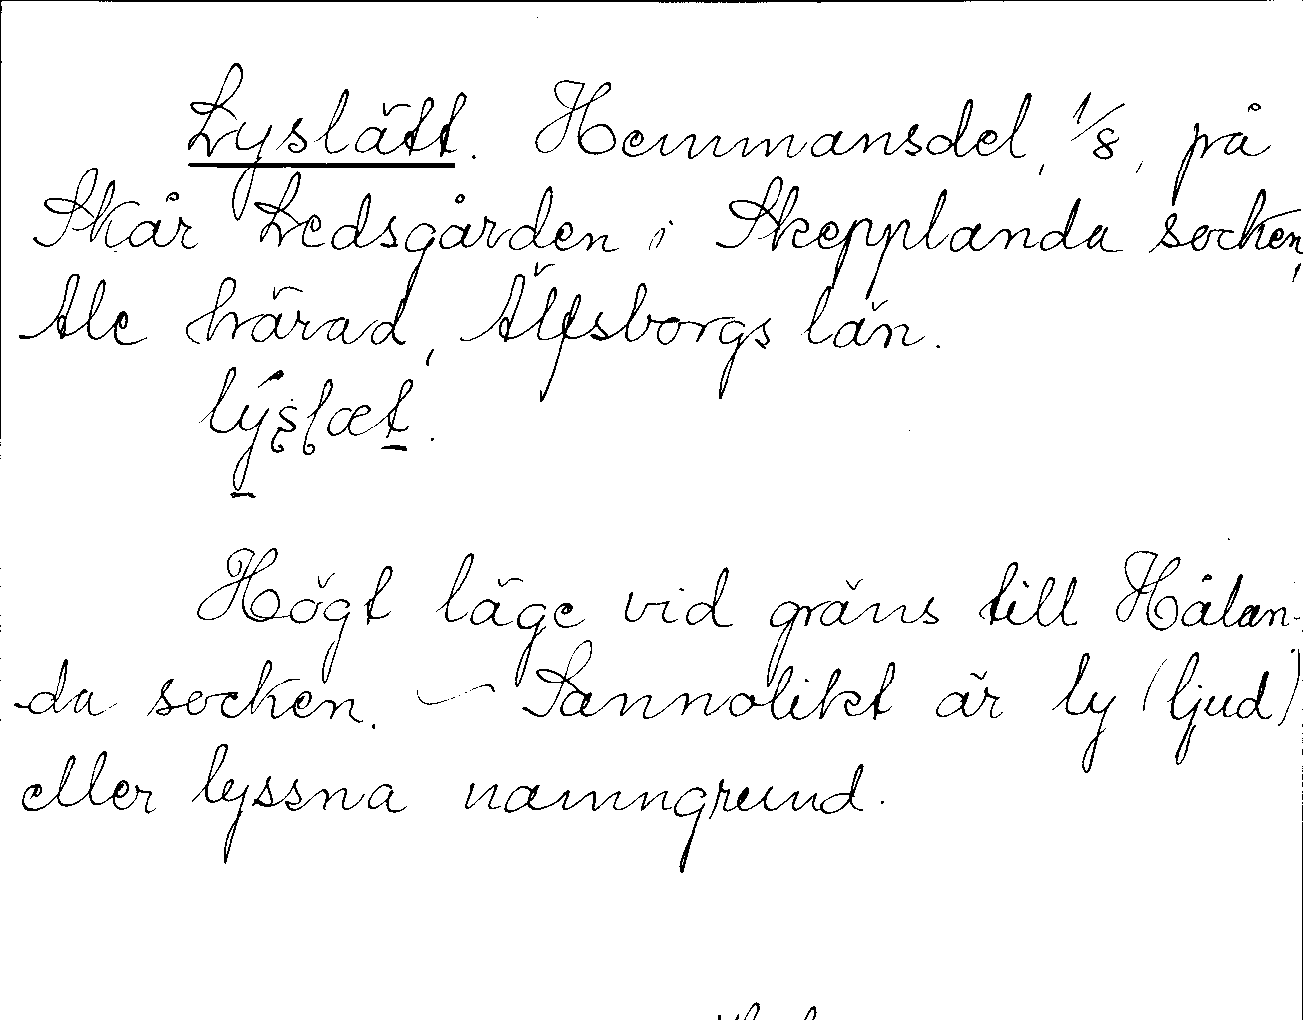 Lyslätt. Hemmansdel, 1/8, på
Skår Ledsgården i Skepplanda socken,
Ale härad, Älfsborgs län.
lýslæt.
Högt läge vid gräns till Hålan-
da socken. – Sannolikt är ly (ljud)
eller lyssna namngrund.